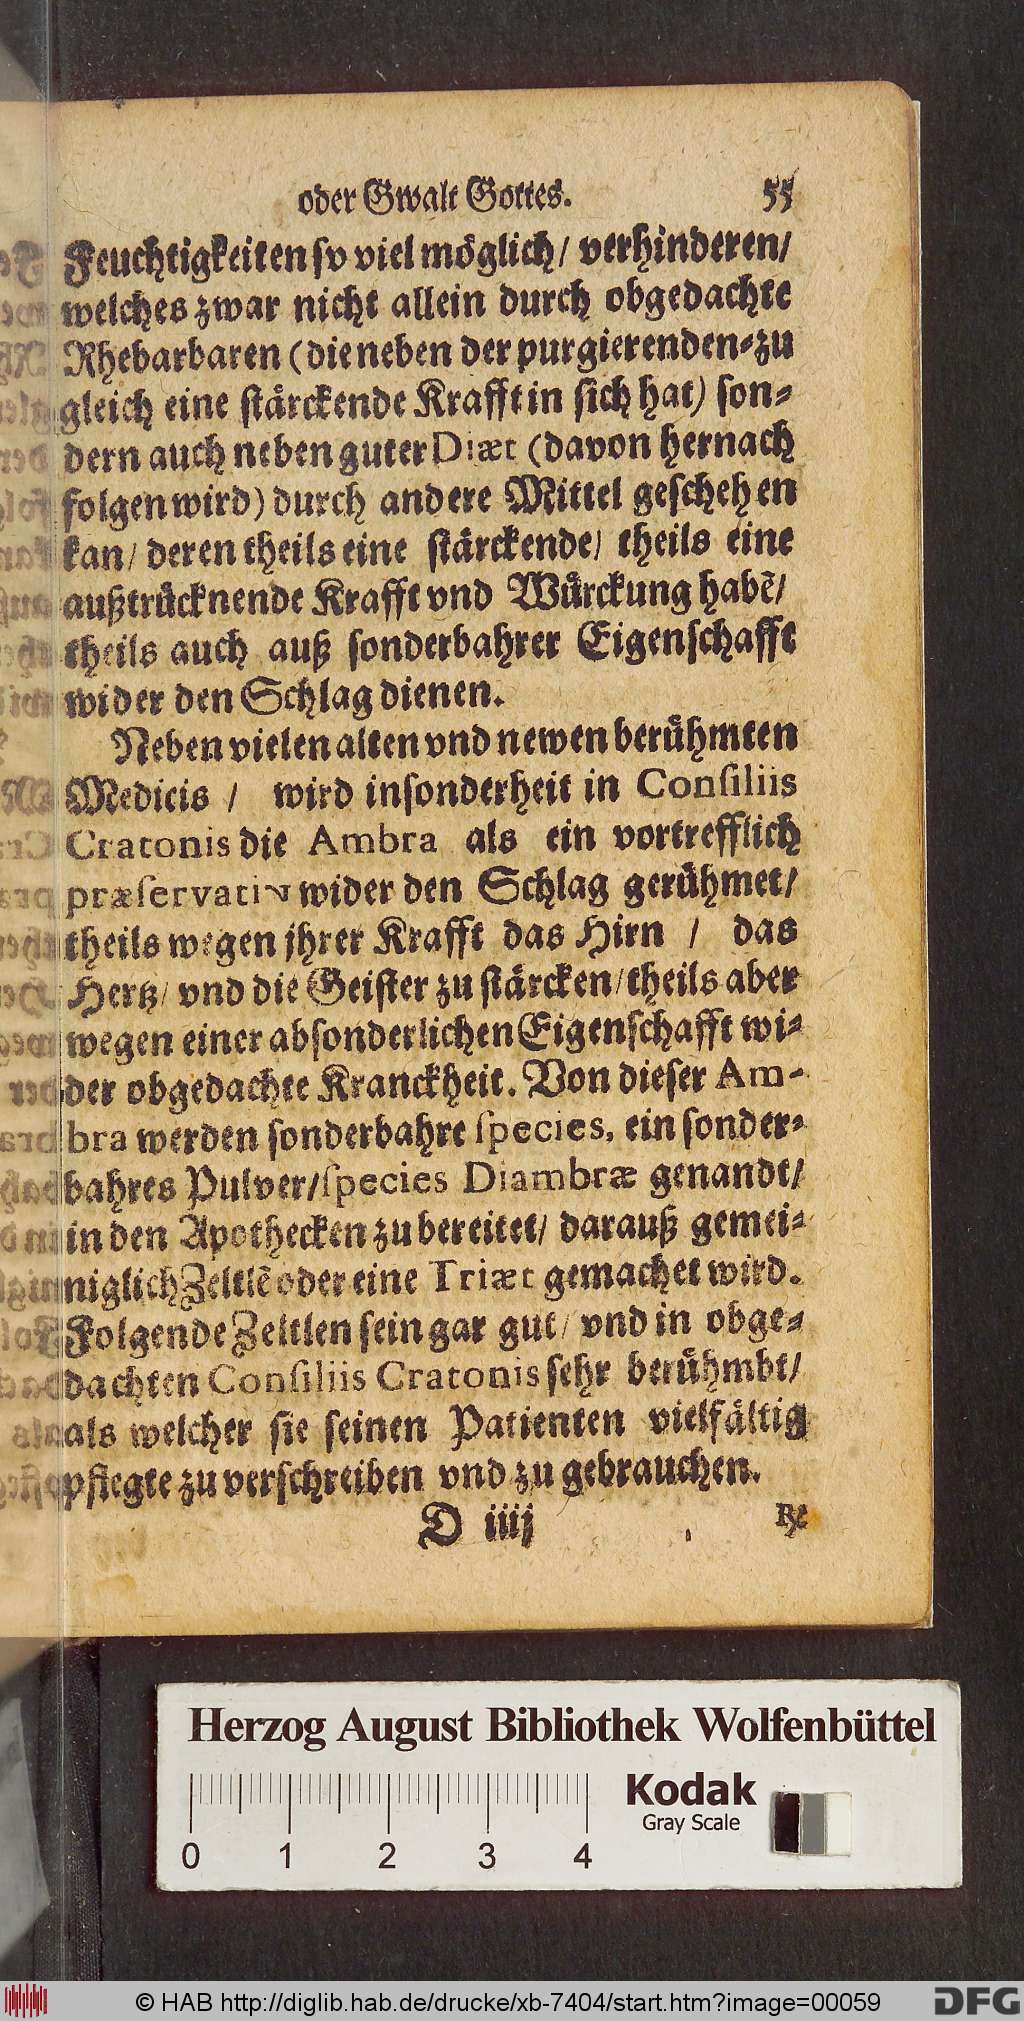 oder Gwalt Gottes. 55
Feuchtigkeiten so viel möglich/ verhinderen/
welches zwar nicht allein durch obgedachte
Rhebarbaren (die neben der purgierenden-zu
gleich eine stärckende Krafft in sich hat) son-
dern auch neben guter Diæt (davon hernach
folgen wird) durch andere Mittel geschehen
kan/ deren theils eine stärckende/ theils eine
außtrücknende Krafft vnd Würckung habē/
theils auch auß sonderbahrer Eigenschafft
wider den Schlag dienen.
Neben vielen alten vnd newen berühmten
Medicis / wird insonderheit in Consiliis
Cratonis die Ambra als ein vortrefflich
præservativ wider den Schlag gerühmet/
theils wegen jhrer Krafft das Hirn / das
Hertz/ vnd die Geister zu stärcken/ theils aber
wegen einer absonderlichen Eigenschafft wi-
der obgedachte Kranckheit. Von dieser Am-
bra werden sonderbahre species, ein sonder-
bahres Pulver/ species Diambræ genandt/
in den Apothecken zubereitet/ darauß gemei-
niglich Zeltlē oder eine Triæt gemachet wird.
Folgende Zeltlen sein gar gut/ vnd in obge-
dachten Consiliis Cratonis sehr berühmbt/
als welcher sie seinen Patienten vielfältig
pflegte zu verschreiben vnd zu gebrauchen.
D iiij ℞
Herzog August Bibliothek Wolfenbüttel
Kodak
Gray Scale
0 1 2 3 4
© HAB http://diglib.hab.de/drucke/xb-7404/start.htm?image=00059
DFG